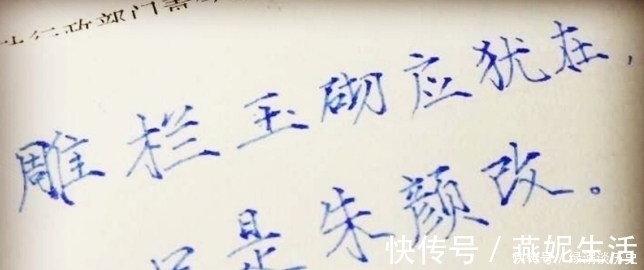 行政部门
雕栏玉砌应犹在，
只是朱颜改。
快传号 / 燕妮生活